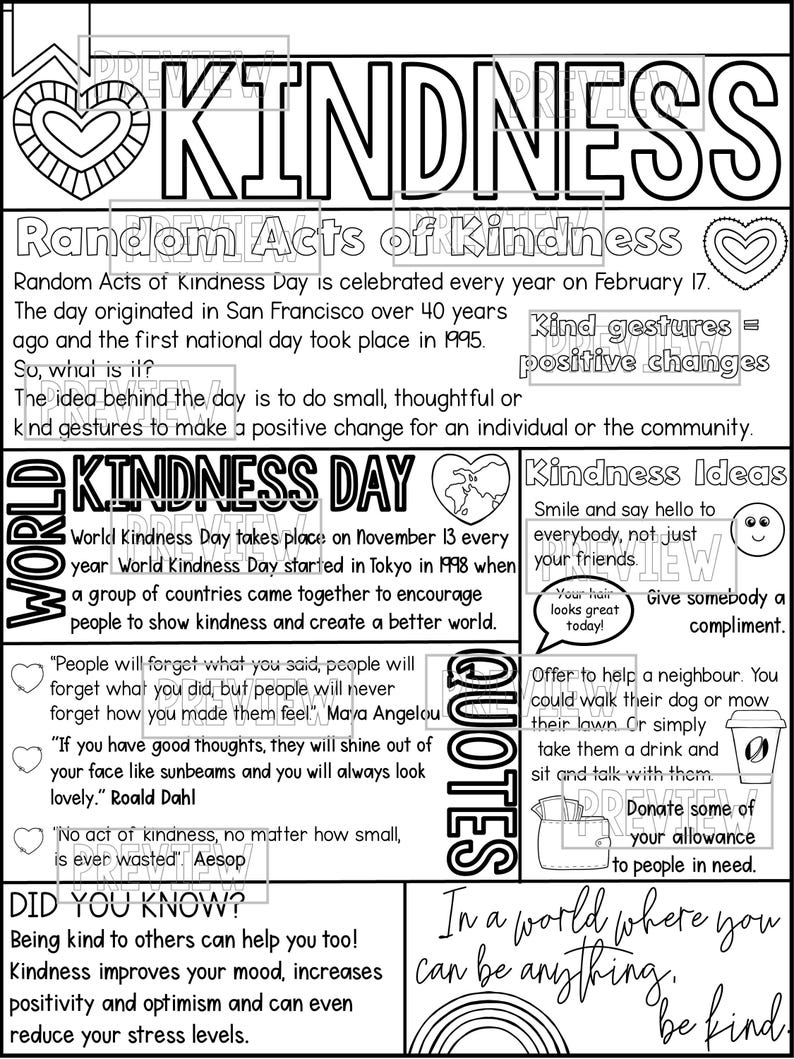 KINDNESS
Random Acts of Kindness
Random Acts of Kindness Day is celebrated every year on February 17.
The day originated in San Francisco over 40 years
ago and the first national day took place in 1995.
Kind gestures =
positive changes
So, what is it?
The idea behind the day is to do small, thoughtful or
kind gestures to make a positive change for an individual or the community.
WORLD
KINDNESS DAY
World Kindness Day takes place on November 13 every
year. World Kindness Day started in Tokyo in 1998 when
a group of countries came together to encourage
people to show kindness and create a better world.
Kindness Ideas
Smile and say hello to
everybody, not just
your friends.
Your hair
looks great
today!
Give somebody a
compliment.
Offer to help a neighbour. You
could walk their dog or mow
their lawn. Or simply
take them a drink and
sit and talk with them.
Donate some of
your allowance
to people in need.
QUOTES
"People will forget what you said, people will
forget what you did, but people will never
forget how you made them feel". Maya Angelou
"If you have good thoughts, they will shine out of
your face like sunbeams and you will always look
lovely." Roald Dahl
"No act of kindness, no matter how small,
is ever wasted". Aesop
DID YOU KNOW?
Being kind to others can help you too!
Kindness improves your mood, increases
positivity and optimism and can even
reduce your stress levels.
In a world where you
can be anything,
be kind.
PREVIEW
PREVIEW
PREVIEW
PREVIEW
PREVIEW
PREVIEW
PREVIEW
PREVIEW
PREVIEW
PREVIEW
PREVIEW
PREVIEW